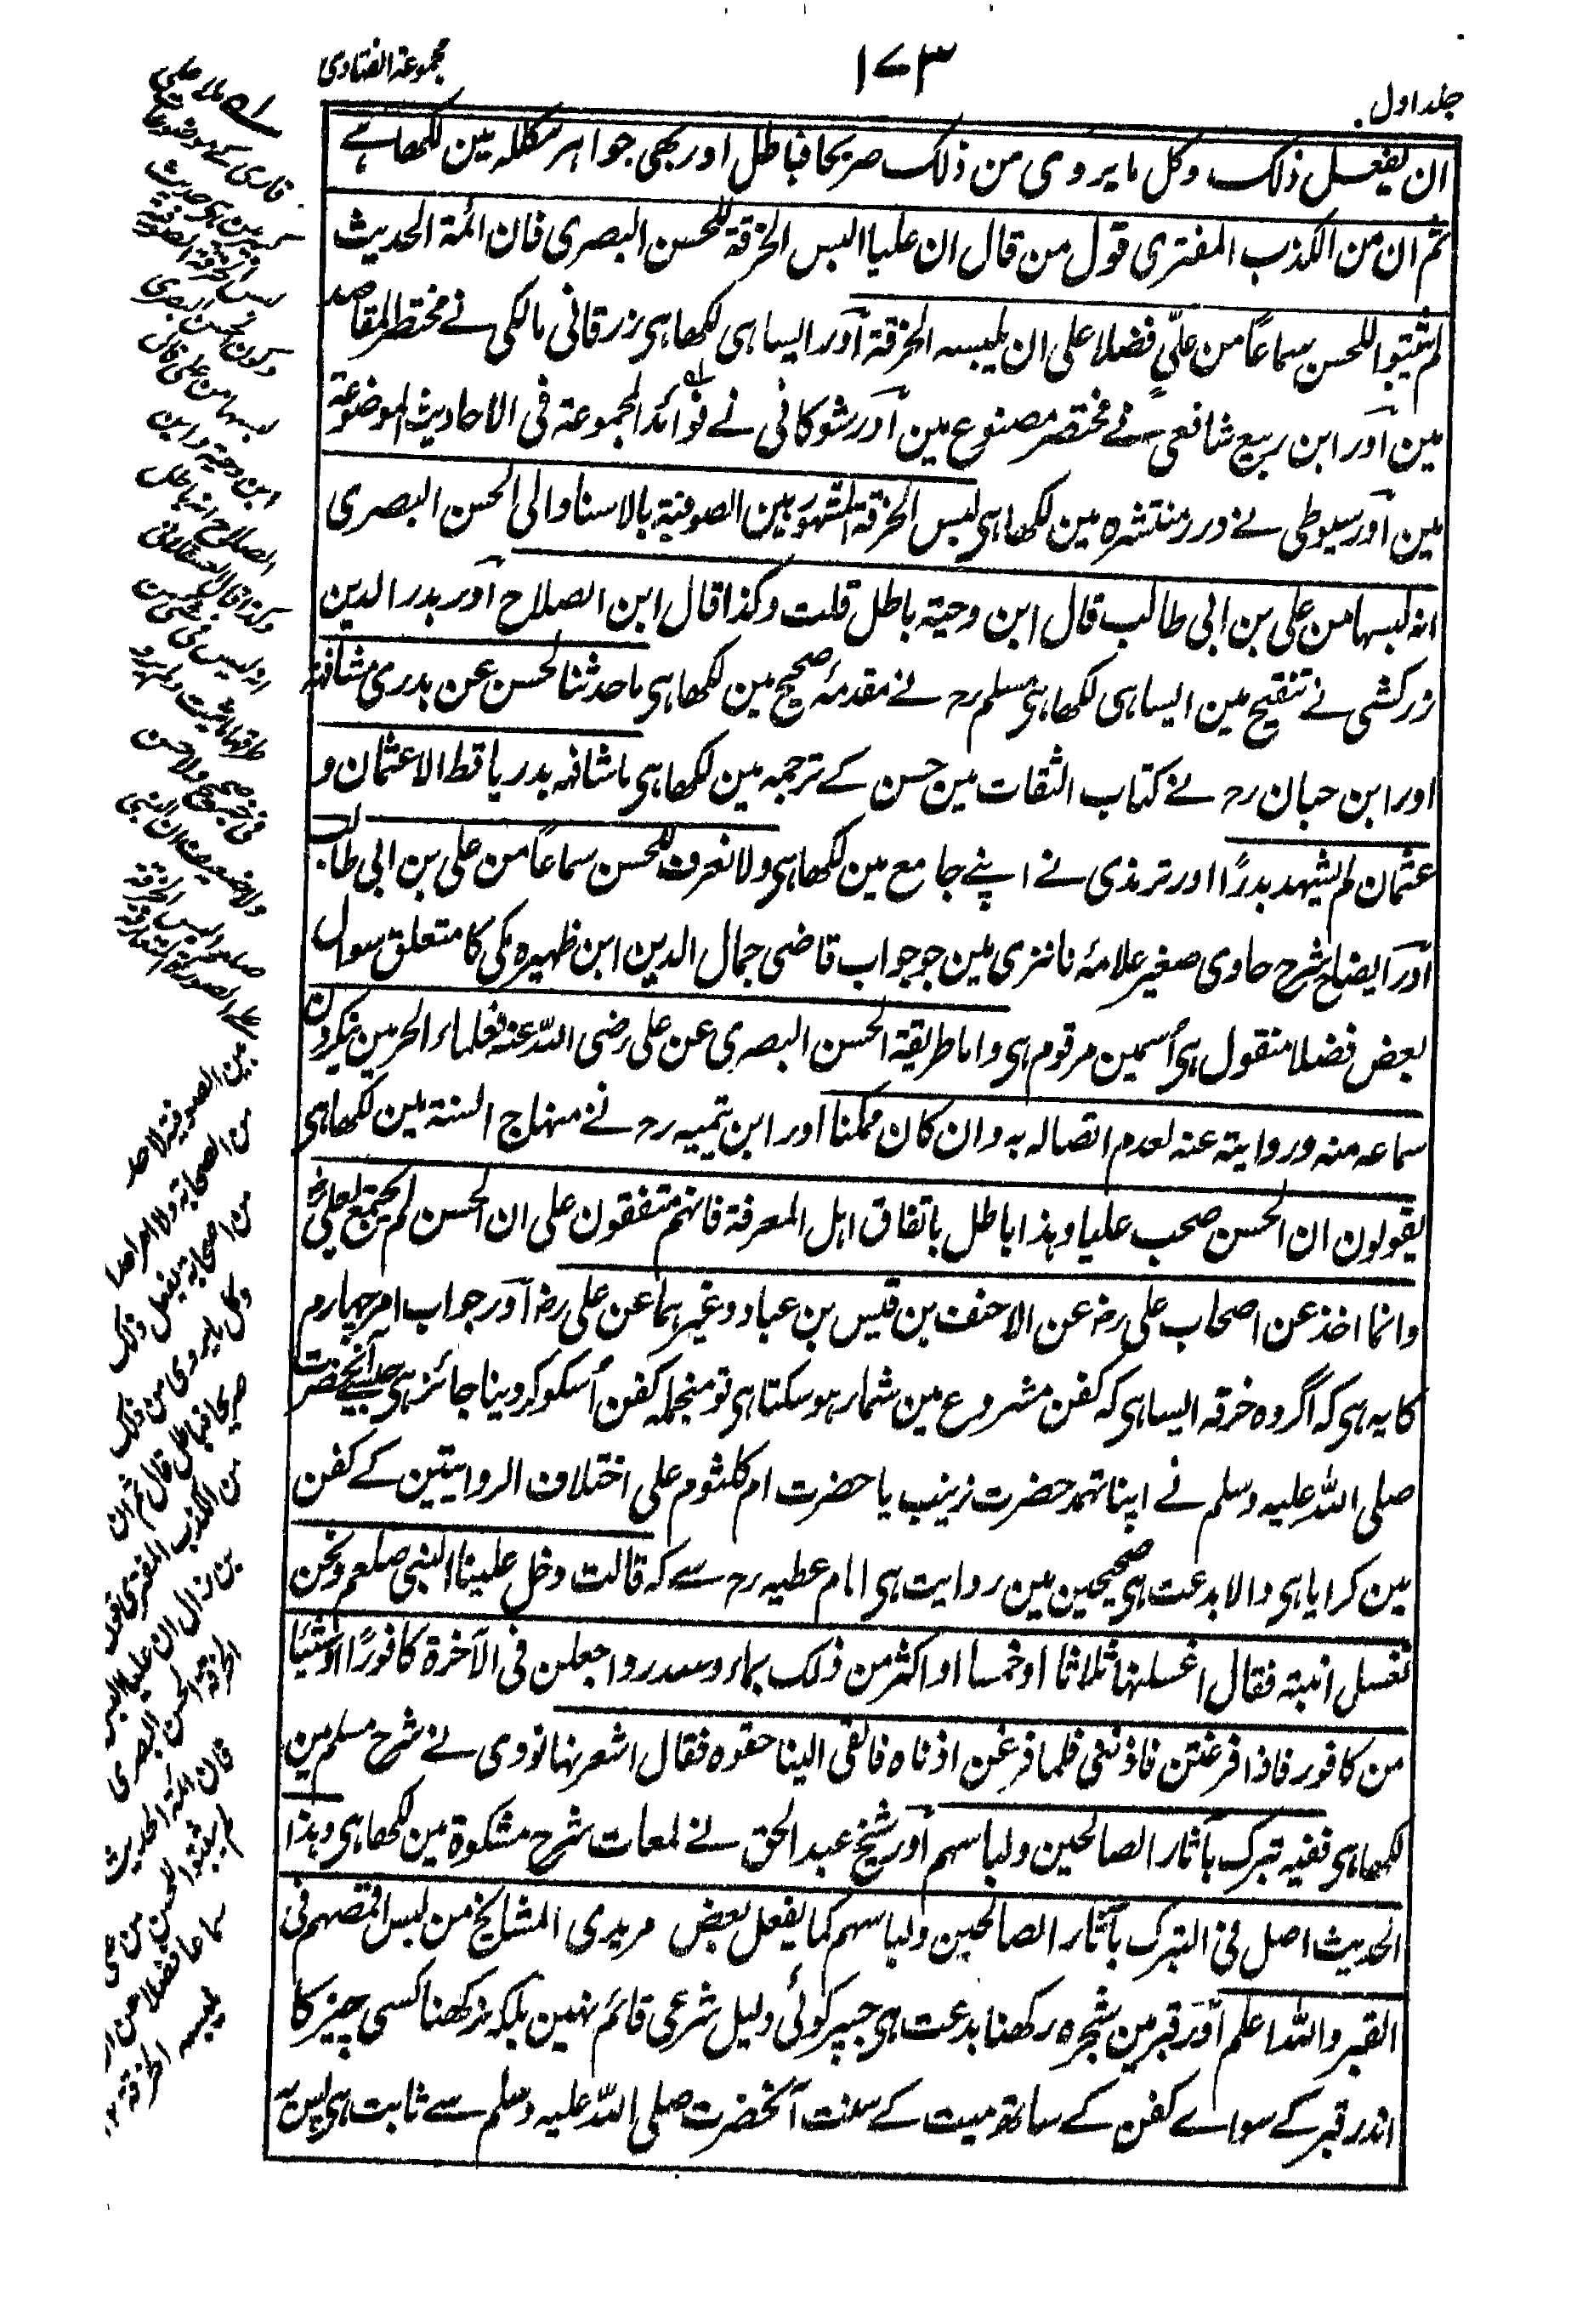 جلد اول
۱۷۳
مجموعۃ الفتاوی
ان یفعل ذلک وکل ما یروی من ذلک صریحا فباطل اور بھی جواہر مکللہ مین لکھا ہے
ثم ان من الکذب المفتری قول من قال ان علیا البس الخرقۃ للحسن البصری فان ائمۃ الحدیث
لم یثبتوا للحسن سماعاً من علیٍّ فضلا علی ان یلبسہ الخرقۃ اور ایسا ہی لکھا ہی زرقانی مالکی نے مختصر المقاصد
مین اور ابن ربیع شافعی نے مختصر مصنوع مین اور شوکانی نے فوائد المجموعۃ فی الاحادیث الموضوعۃ
مین اور سیوطی نے درر منتشرہ مین لکھا ہی لبس الخرقۃ المشہور بین الصوفیۃ بالاسناد الی الحسن البصری
انہ لبسہا من علی بن ابی طالب قال ابن دحیۃ باطل قلت وکذا قال ابن الصلاح اور بدر الدین
زرکشی نے تنقیح مین ایسا ہی لکھا ہی مسلم رح نے مقدمۂ صحیح مین لکھا ہی ما حدثنا الحسن عن بدری مشافہۃ
اور ابن حبان رح نے کتاب الثقات مین حسن کے ترجمہ مین لکھا ہی ما شافہ بدریا قط الا عثمان و
عثمان لم یشہد بدرًا اور ترمذی نے اپنے جامع مین لکھا ہی ولا نعرف للحسن سماعاً من علی بن ابی طالب
اور ایضاح شرح حاوی صغیر علامۂ ناشری مین جو جواب قاضی جمال الدین ابن ظہیرہ مکی کا متعلق سوال
بعض فضلا منقول ہی اُسمین مرقوم ہی واما طریقۃ الحسن البصری عن علی رضی اللہ عنہ فعلماء الحرمین ینکرون
سماعہ منہ وروایتہ عنہ لعدم اتصالہ بہ وان کان ممکنا اور ابن تیمیہ رح نے منہاج السنۃ مین لکھا ہی
یقولون ان الحسن صحب علیا وہذا باطل باتفاق اہل المعرفۃ فانہم متفقون علی ان الحسن لم یجتمع بعلی رض
وانما اخذ عن اصحاب علی رض عن الاحنف بن قیس بن عباد وغیرہما عن علی رض اور جواب امر چہارم
کا یہ ہی کہ اگر وہ خرقہ ایسا ہی کہ کفن مشروع مین شمار ہو سکتا ہی تو منجملہ کفن اُسکو کر دینا جائز ہی جیسے آنحضرت
صلی اللہ علیہ وسلم نے اپنا تہمد حضرت زینب یا حضرت ام کلثوم علی اختلاف الروایتین کے کفن
مین کرایا ہی والا بدعت ہی صحیحین مین روایت ہی ام عطیہ رح سے کہ قالت دخل علینا النبی صلعم ونحن
نغسل ابنتہ فقال اغسلنہا ثلاثا او خمسا او اکثر من ذلک بماء وسدر واجعلن فی الآخرۃ کافورًا او شیئًا
من کافور فاذا فرغتن فاذننی فلما فرغن اذناہ فالقی الینا حقوہ فقال اشعرنہا نووی نے شرح مسلم مین
لکھا ہی ففیہ تبرک بآثار الصالحین ولباسہم اور شیخ عبد الحق نے لمعات شرح مشکوۃ مین لکھا ہی وہذا
الحدیث اصل فی التبرک بآثار الصالحین ولباسہم کما یفعل بعض مریدی المشائخ من لبس اقمصہم فی
القبر واللہ اعلم اور قبر مین شجرہ رکھنا بدعت ہی جسپر کوئی دلیل شرعی قائم نہین بلکہ نرکھنا کسی چیز کا
اندر قبر کے سواے کفن کے ساتھ میت کے سنت آنحضرت صلی اللہ علیہ وسلم سے ثابت ہی پس یہ
ملا علی
قاری کے موضوعات
کبیر مین ہی حدیث
لبس الخرقۃ الصوفیۃ
وکون الحسن البصری
لبسہا من علی قال
ابن دحیۃ وابن
الصلاح انہ باطل
وکذا قال العسقلانی
انہ لیس فی شئ من
طرقہا ما یثبت ولم یرد
فی خبر صحیح ولا حسن
ولا ضعیف ان النبی
صلعم البس الخرقۃ
علی الصورۃ المتعارفۃ
بین الصوفیۃ لاحد
من الصحابۃ ولا امر احدا
من اصحابہ بفعل ذلک
وکل ما یروی من ذلک
صریحا فباطل قال ثم ان
من الکذب المفتری قول
من قال ان علیا البس
الخرقۃ الحسن البصری
فان ائمۃ الحدیث
لم یثبتوا للحسن من علی
سماعا فضلا من ان
یلبسہ الخرقۃ ۱۲